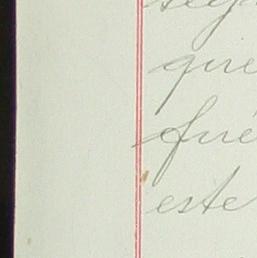 que
fué
este